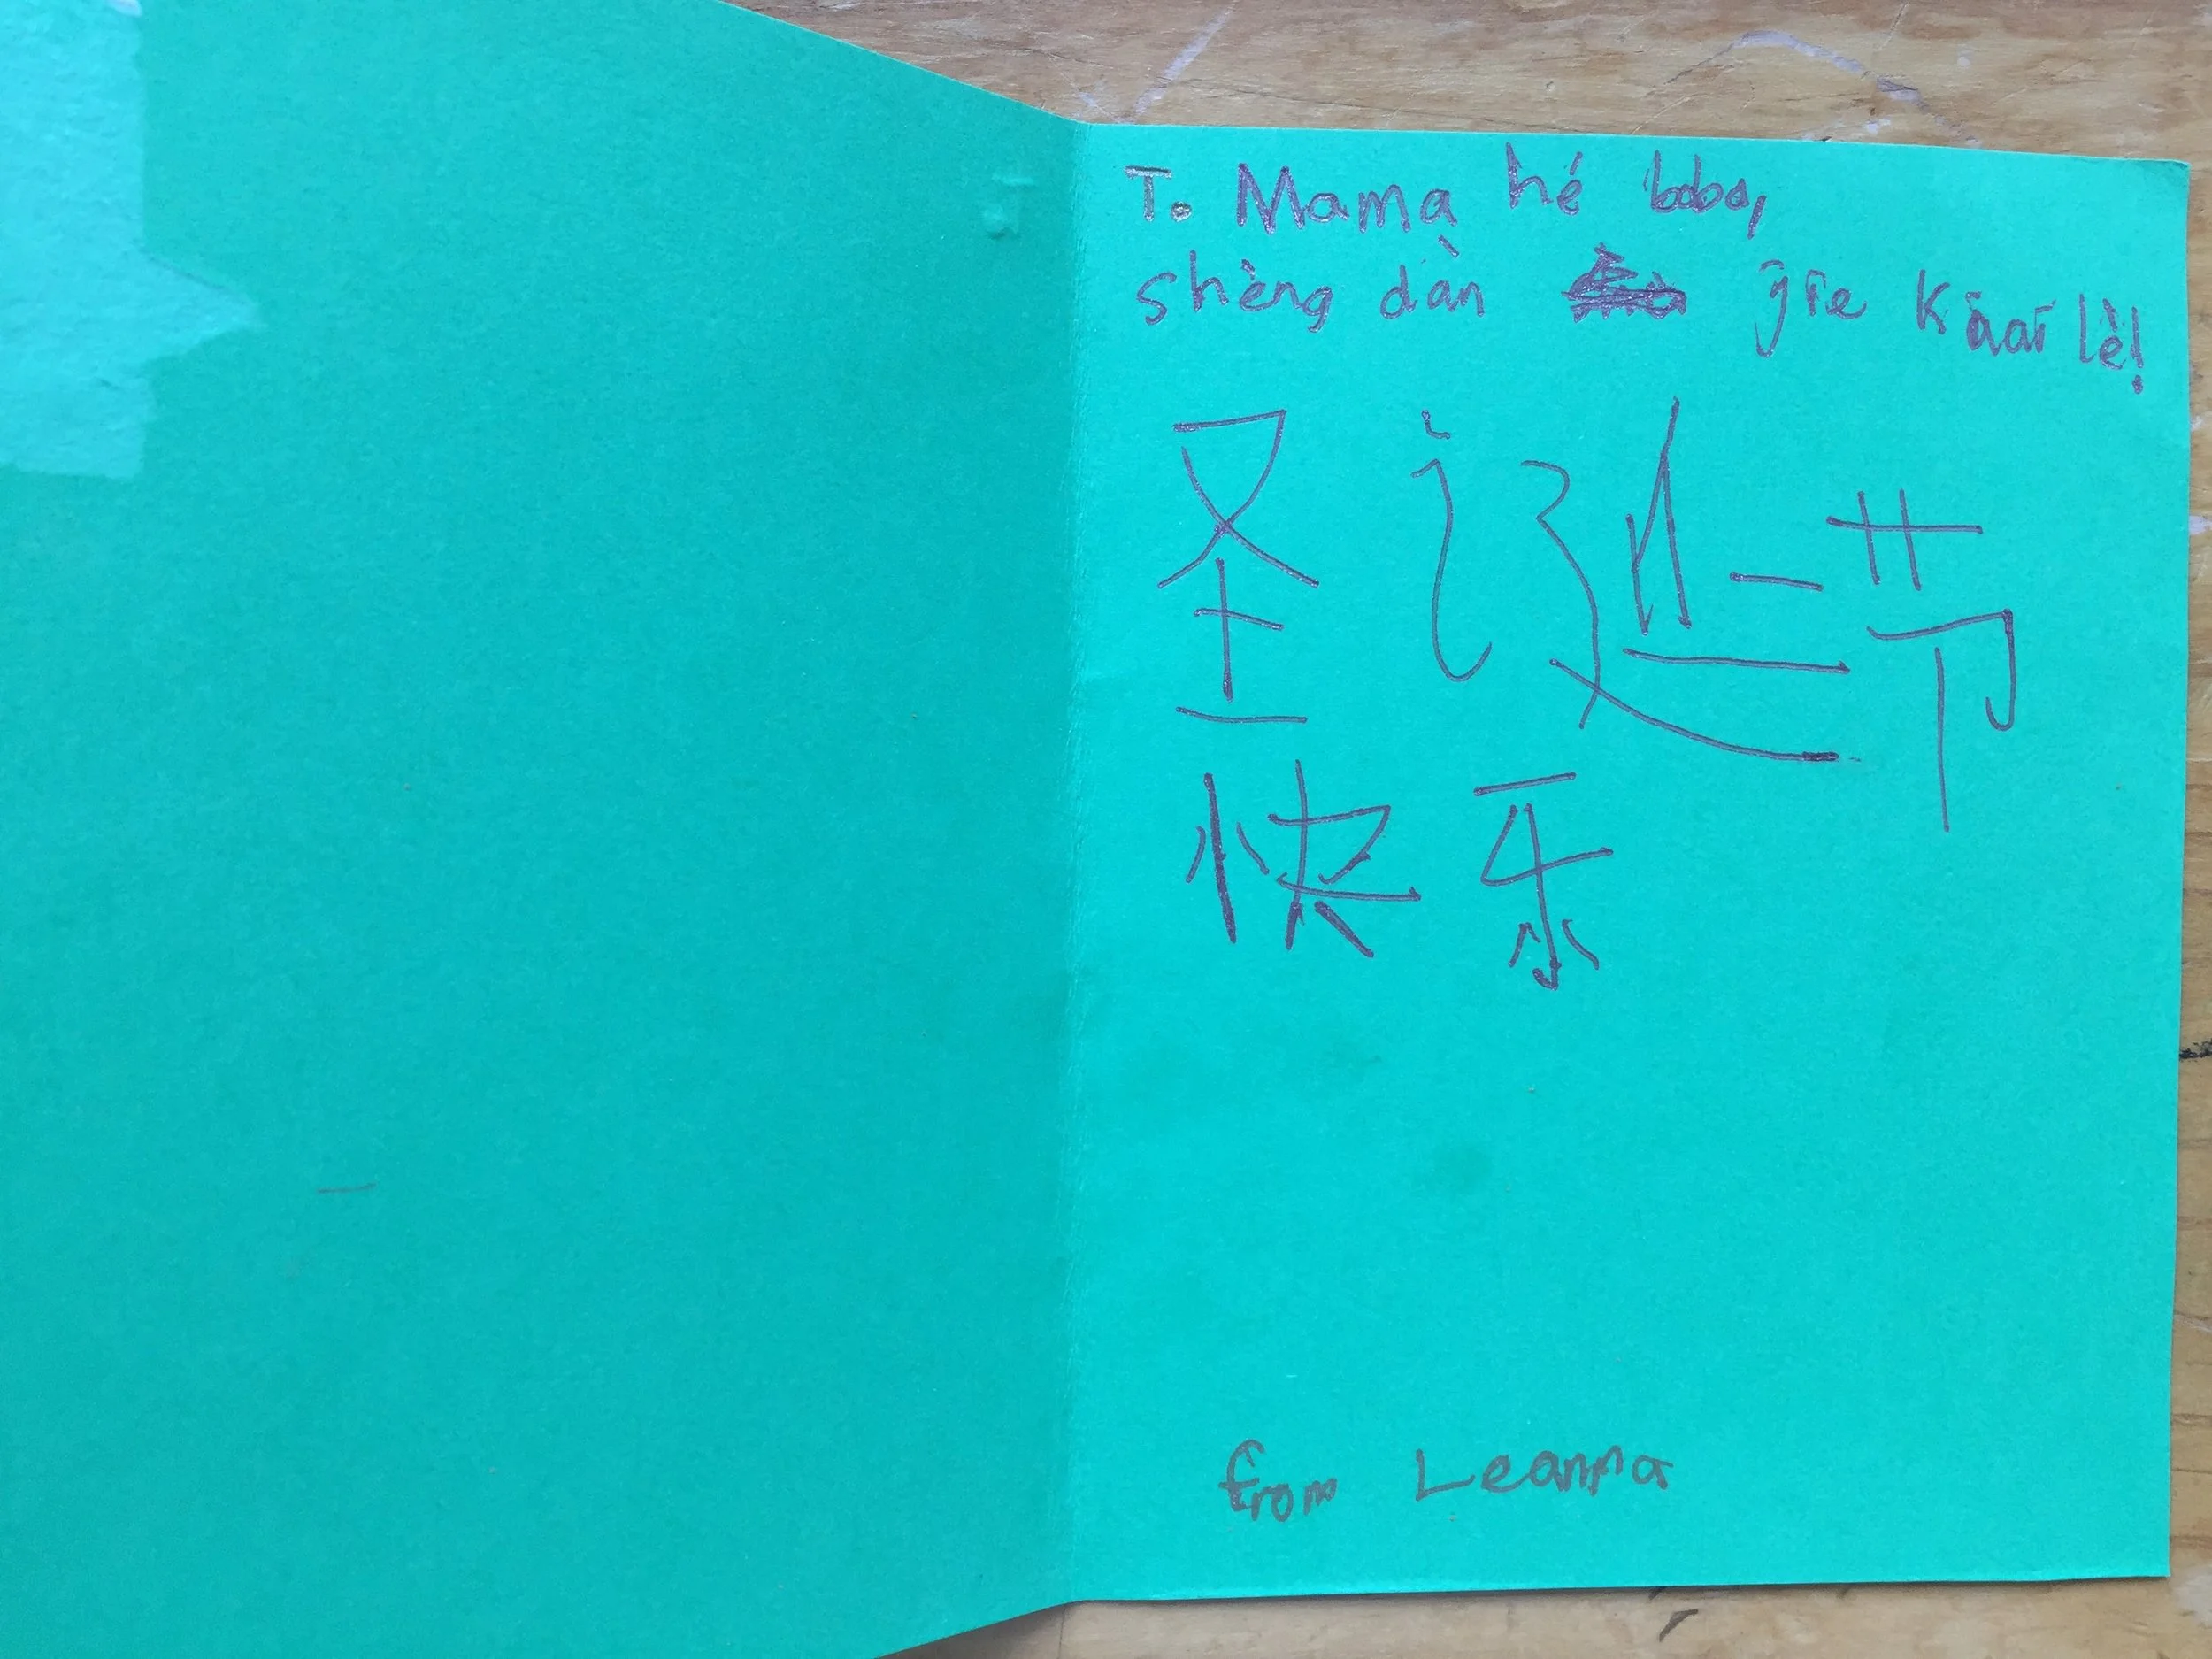 To Mama hé baba,
shèng dàn jīe kàai lè!
圣诞节
快乐
from Leanna